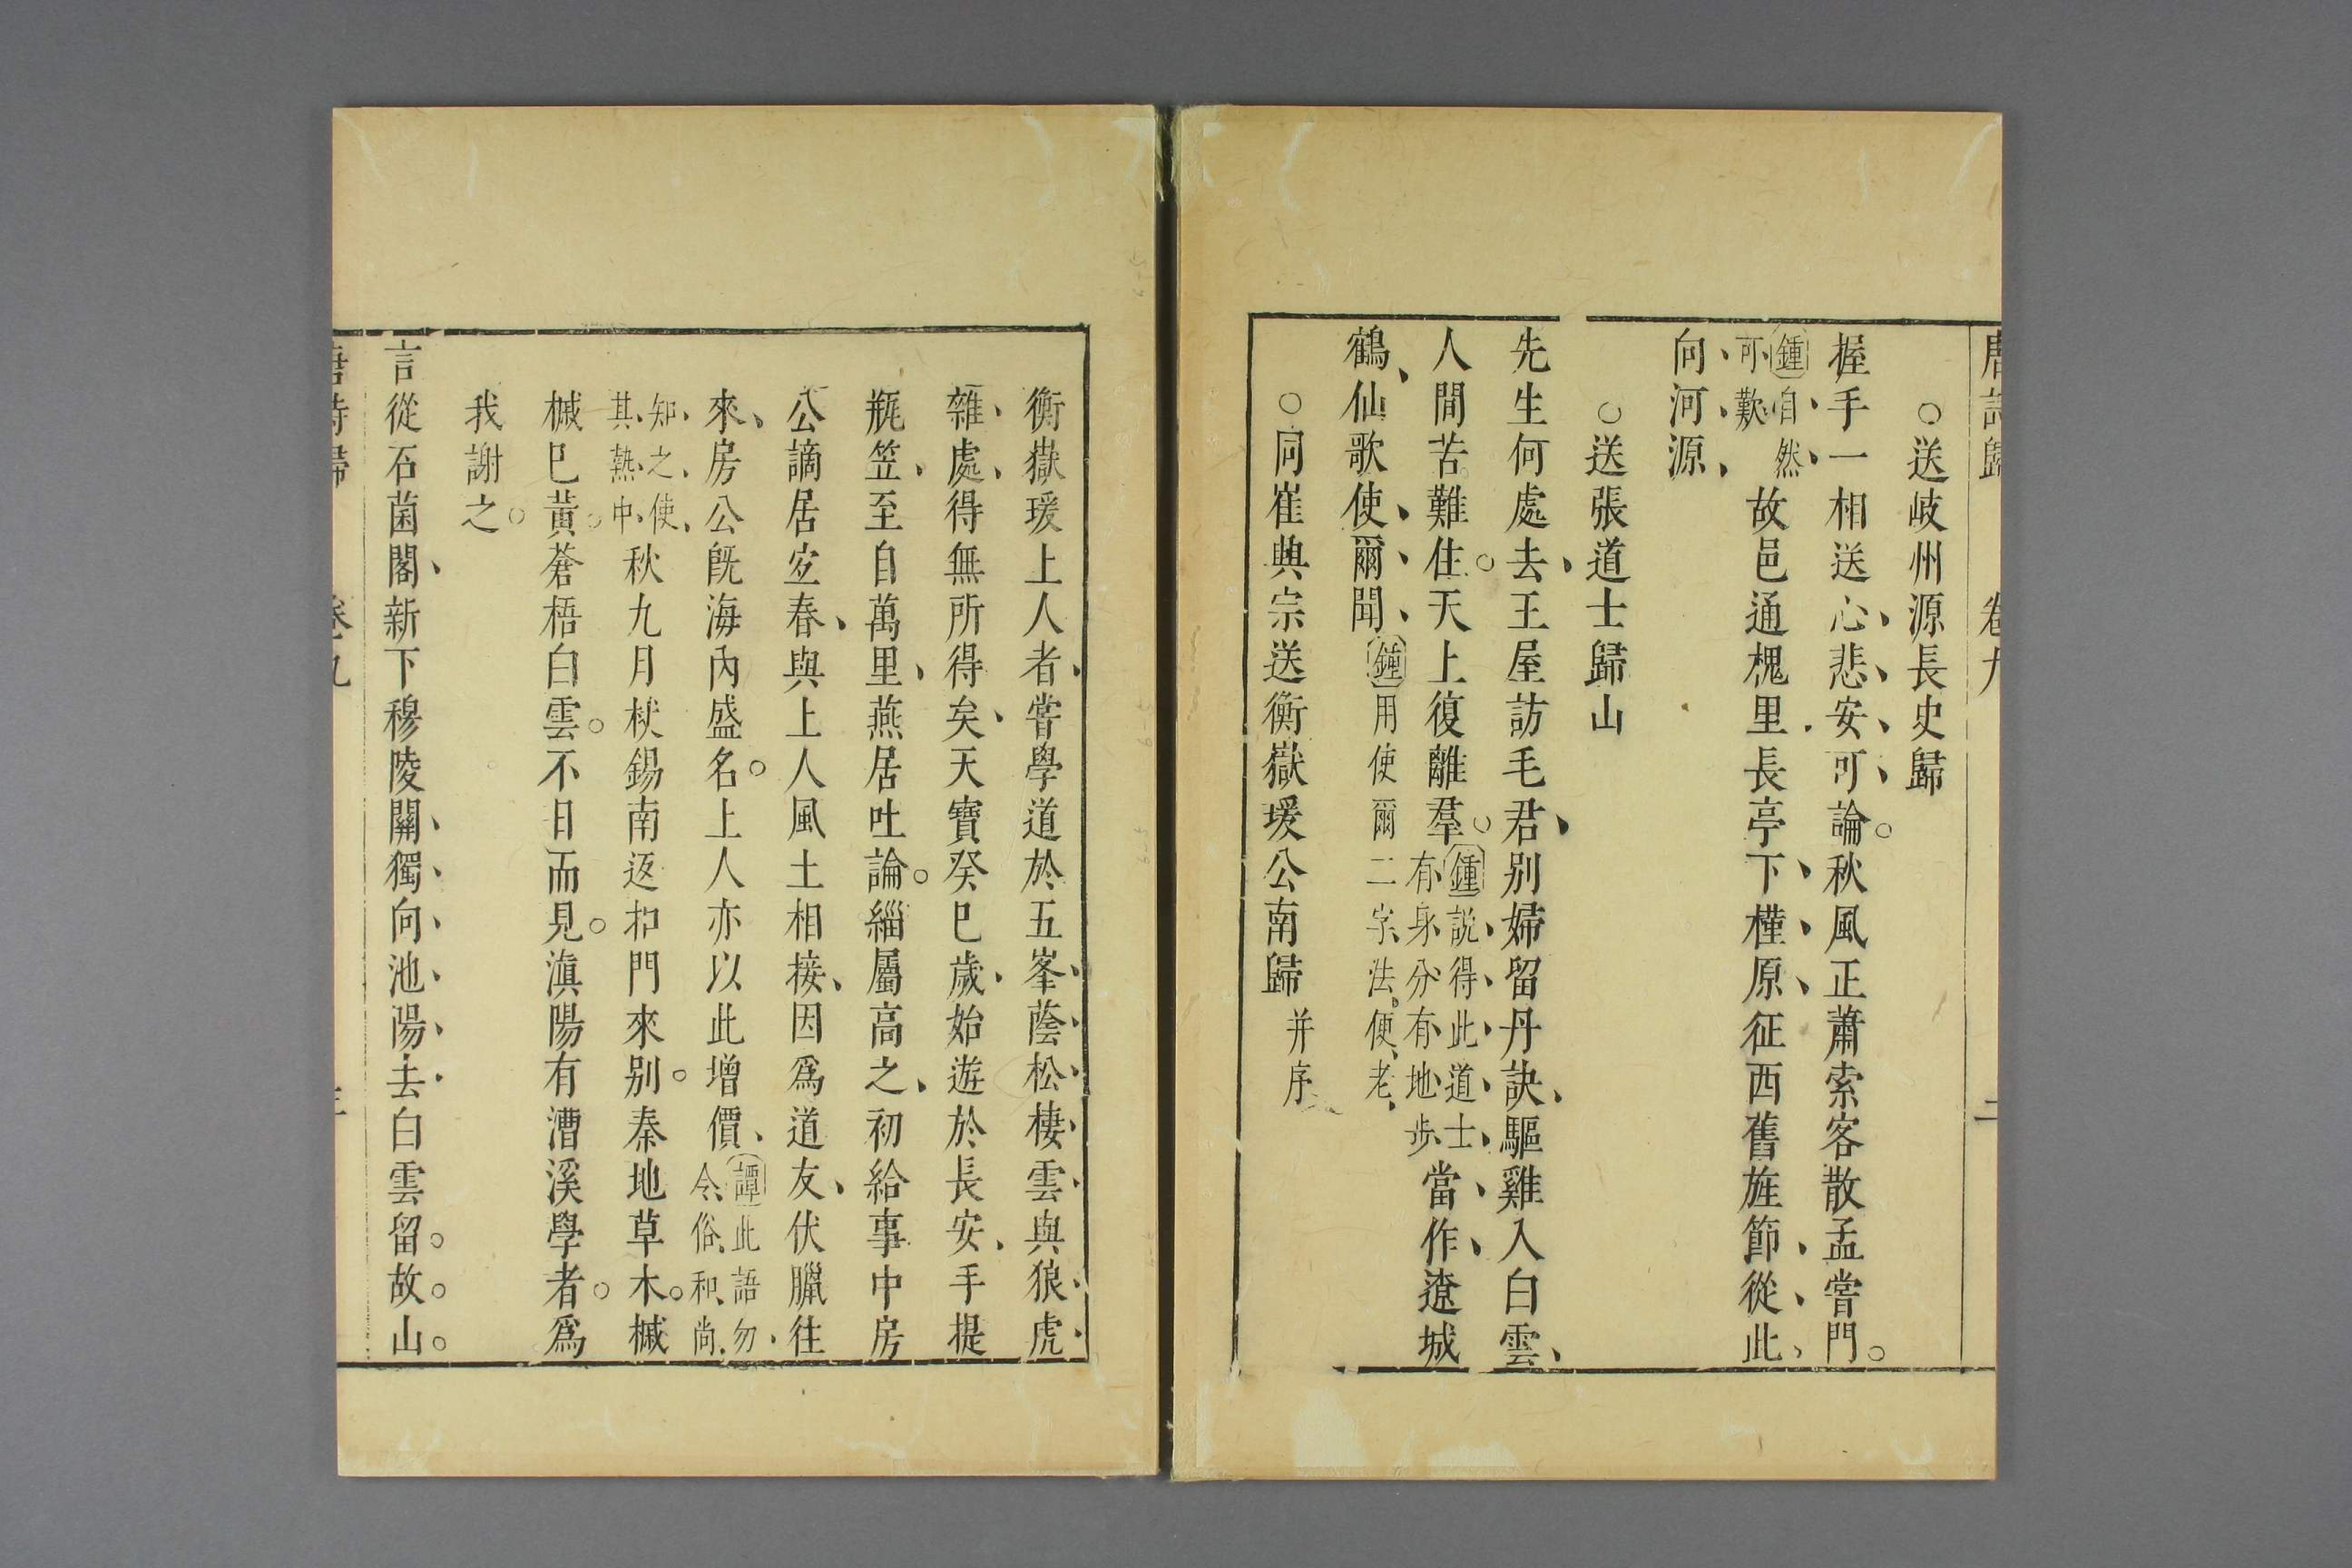 唐詩歸 卷九 二
○送岐州源長史歸
握手一相送心悲安可論秋風正蕭索客散孟嘗門
鍾自然
可歎
故邑通槐里長亭下槿原征西舊旌節從此
向河源
○送張道士歸山
先生何處去王屋訪毛君別婦留丹訣驅雞入白雲
人間苦難住天上復離羣
鍾說得此道士
有身分有地步
當作遼城
鶴仙歌使爾聞
鍾用使爾二字法便老
○同崔興宗送衡嶽瑗公南歸
并序
衡嶽瑗上人者嘗學道於五峯蔭松棲雲與狼虎
雜處得無所得矣天寶癸巳歲始遊於長安手提
瓶笠至自萬里燕居吐論緇屬高之初給事中房
公謫居宜春與上人風土相接因爲道友伏臘往
來房公旣海內盛名上人亦以此增價
譚此語勿
令俗和尚
知之使
其熱中
秋九月杖錫南返扣門來別秦地草木槭
槭已黃蒼梧白雲不日而見滇陽有漕溪學者爲
我謝之
言從石菌閣新下穆陵關獨向池陽去白雲留故山
唐詩歸 卷九